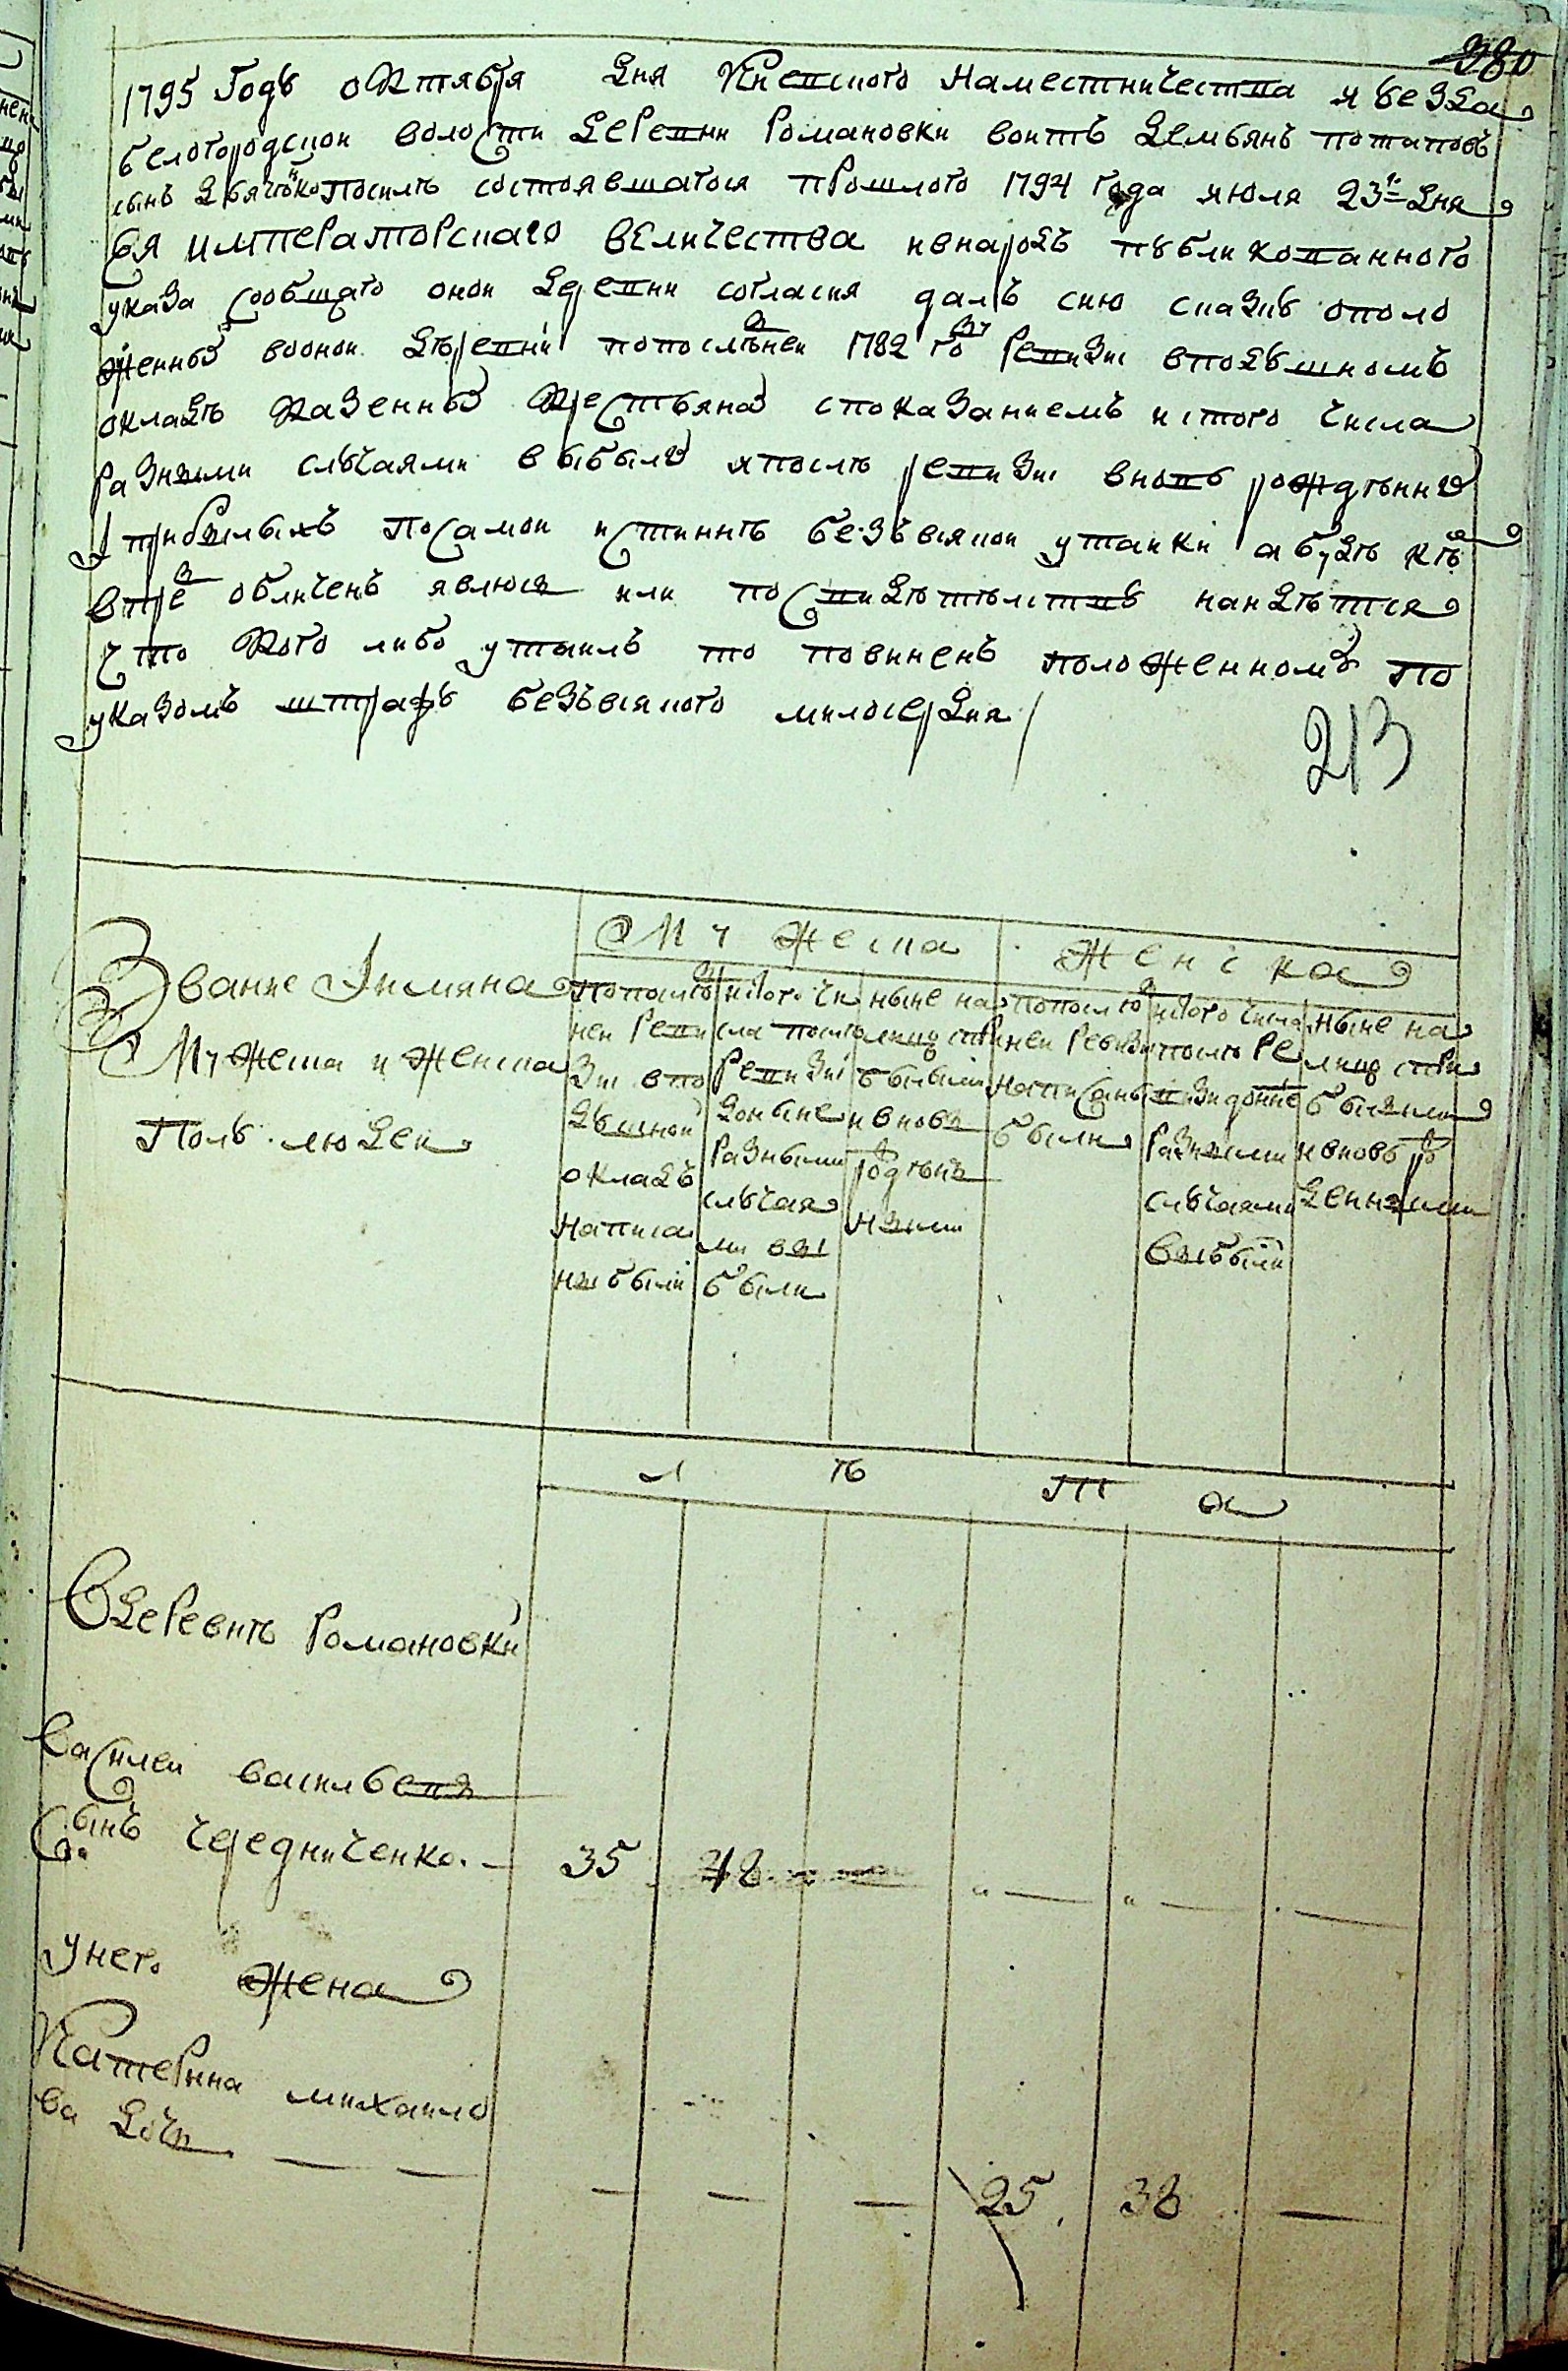 380
1795 Годѣ октября дня Киевского наместничества и ѣезда
белогородской волости деревни Романовки воитъ демьянъ потаповъ
сынъ посилѣ состоявшагося прошлого 1794 года июля 23г дня
Ея императорскаго величества ивнародъ пѣбликованного
указа собщаго оной деревни согласия далъ сию сказкѣ ополо
женныхъ воонои деревни попослѣдней 1782 го ревизии вподѣшномъ
окладѣ казенныхъ крестьянахъ споказаниемъ истого числа
разными слѣчаями выбылихъ ипослѣ ревизии вновь рожденнихъ
и прибылыхъ посамой истиннѣ безъвсякой утайки абудѣ кѣмъ
впредь обличенъ явлюся или по свидѣтельствѣ найдѣтся
что кого либо утаилъ то повиненъ положенномѣ по
указомъ штрафѣ безъвсякого милосердия
213
Звание Иимяна
Мужеска и женска
Полѣ людей
Мужеска
Женска
попослѣд
ней реви
зии впо
дѣшной
окладъ
написа
ны были
истого чи
сла послѣ
ревизии
доныне
разными
слѣчая
ми вы
были
ныне на
лицо спри
былыми
ивновь
родѣнъ
ными
попослѣд
ней ревизи
написаны
были
истого числа
послѣ ре
визи доныне
разными
слѣчаями
выбыли
ныне на
лицо спри
былыми
ивновь ро
денными
л ѣ т а
Вдеревнѣ Романовки
Василей васильевъ
Сынъ чередниченко.
35 48
Унего жена
Катерина михайло
ва дочь
25 38